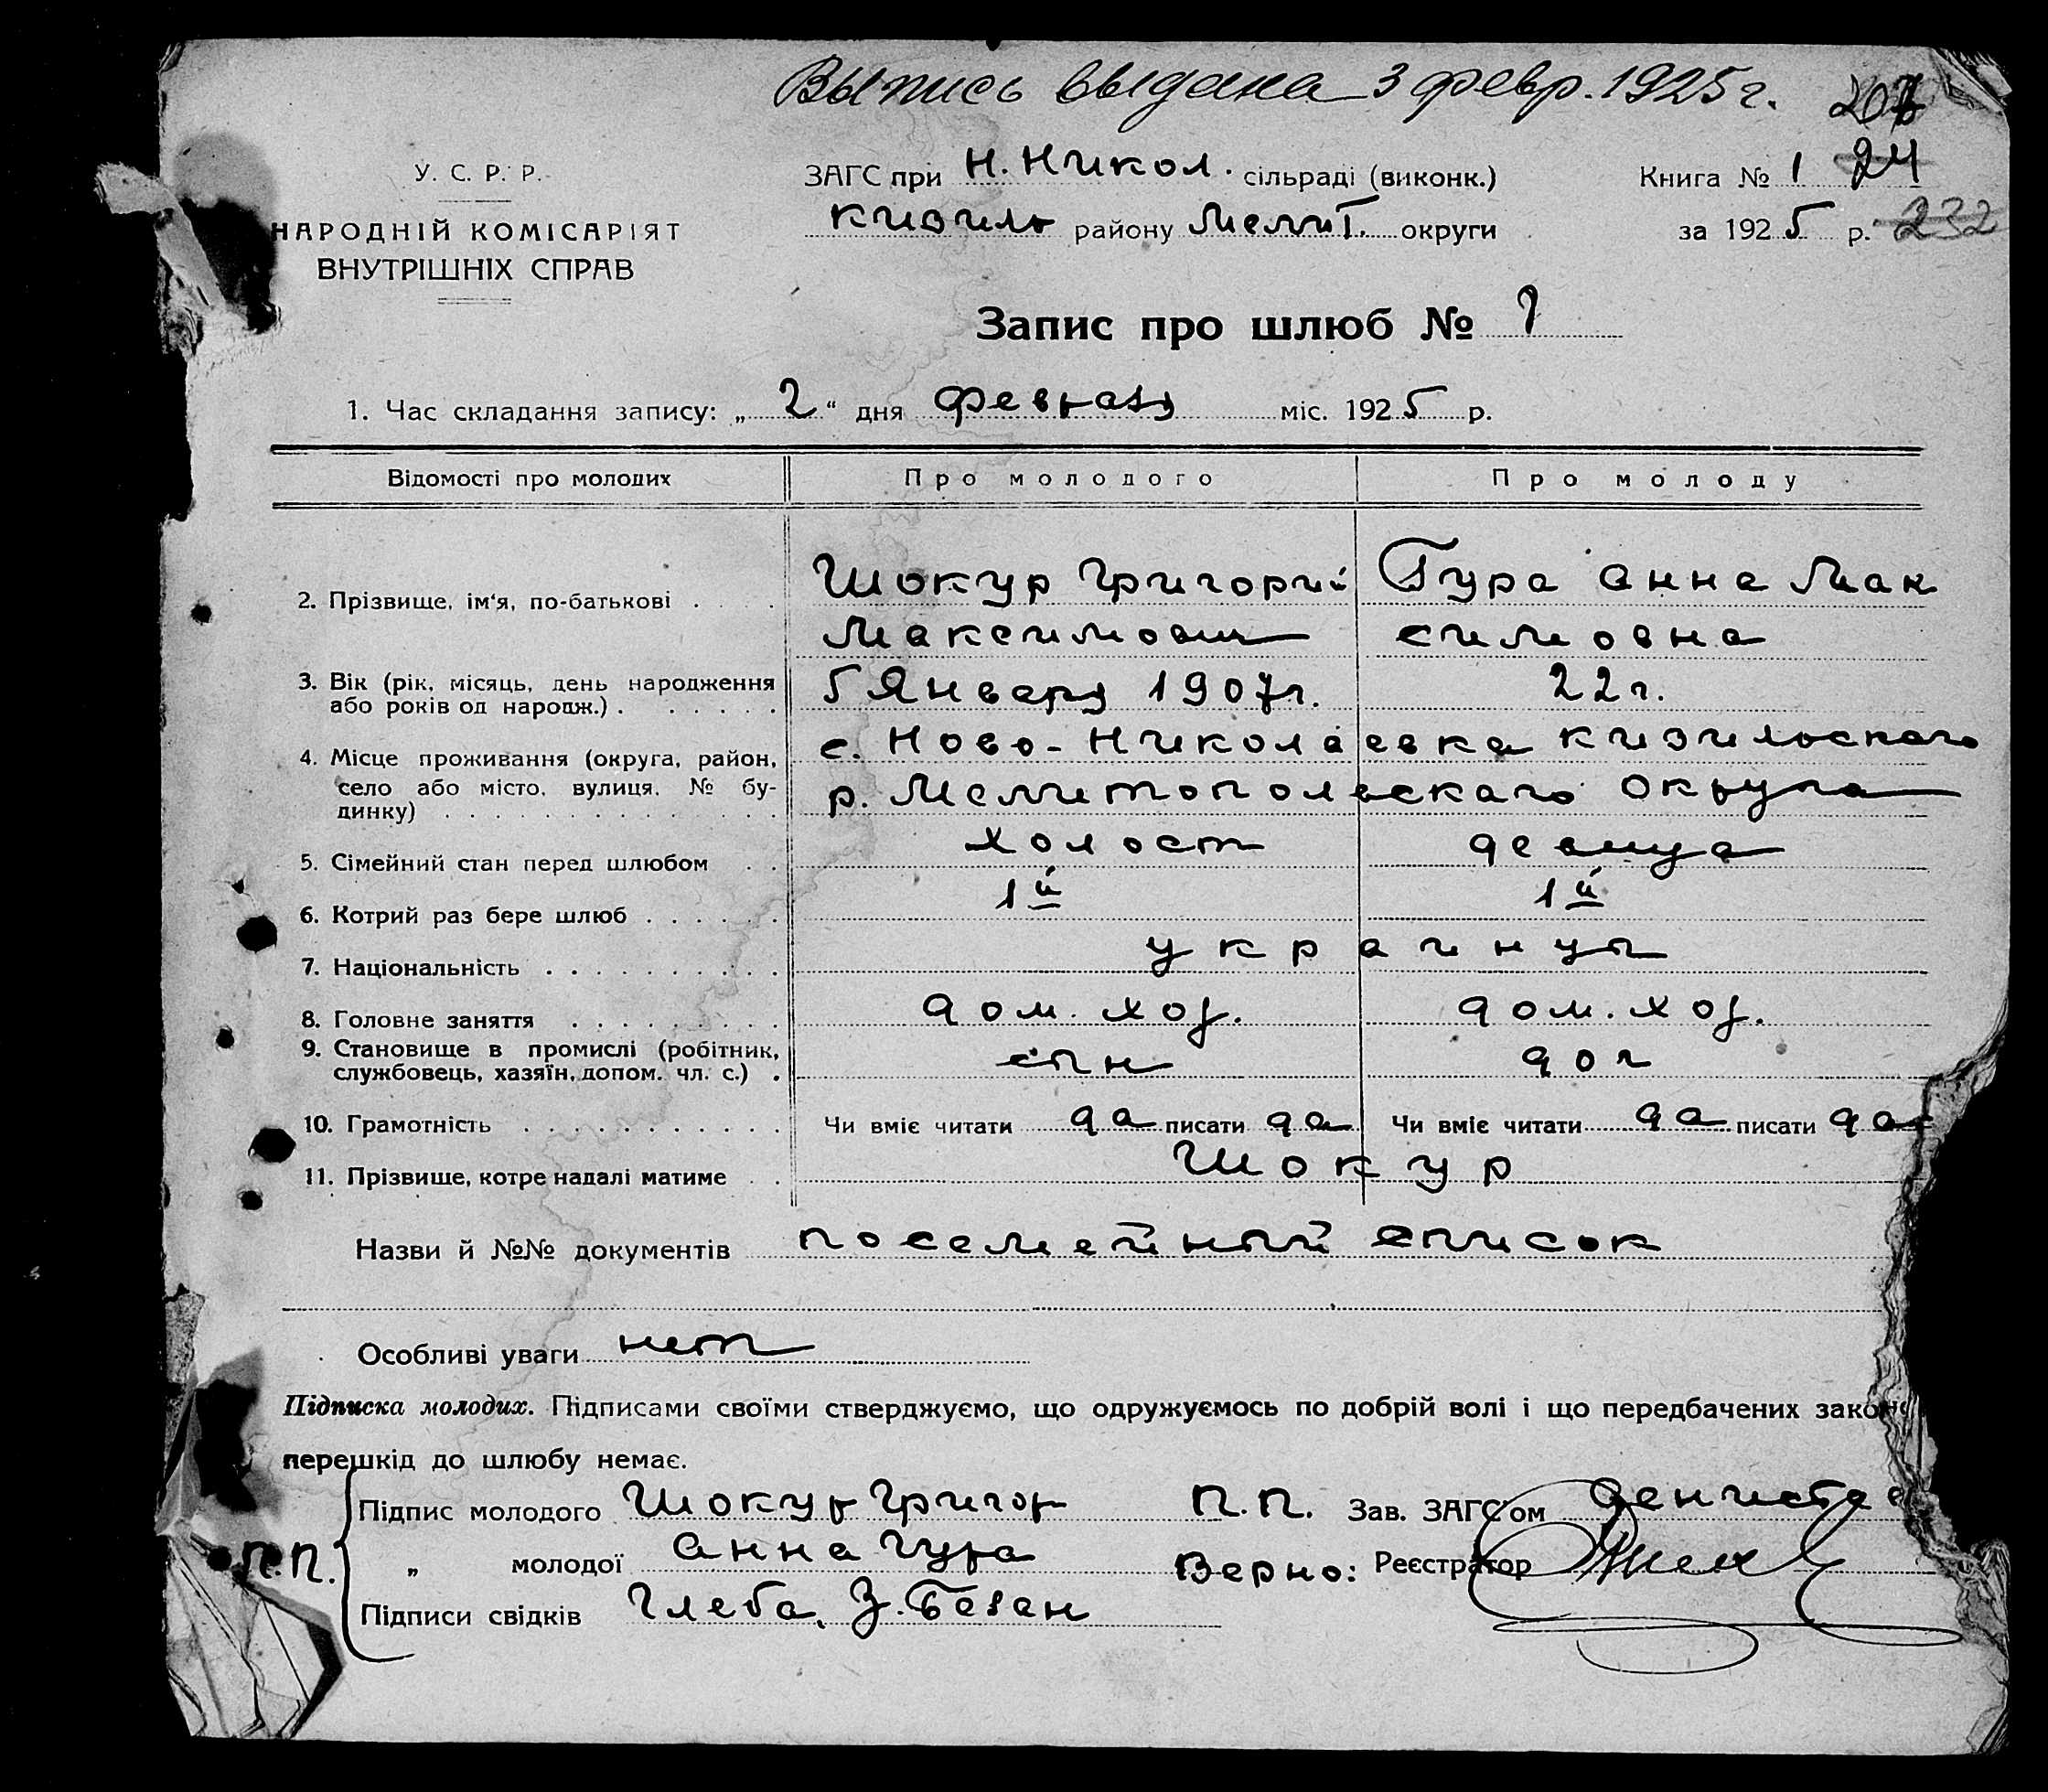 Выпись выдана 3 февр. 1925 г. 207
У. С. Р. Р.
ЗАГС при Н. Никол. сільраді (виконк.) Книга № 1 24
НАРОДНІЙ КОМІСАРІЯТ
ВНУТРІШНІХ СПРАВ
Кизиль району Мелит. округи за 1925 р. 232
Запис про шлюб № 7
1. Час складання запису: „ 2 “ дня февраля міс. 1925 р.
Відомості про молодих Про молодого Про молоду
2. Прізвище, ім'я, по-батькові Шокур Григорий Гура Анна Мак
Максимович симовна
3. Вік (рік, місяць, день народження
або років од народж.) 5 Января 1907 г. 22 г.
4. Місце проживання (округа, район, с. Ново-Николаевка Кизильского
село або місто, вулиця, № бу- р. Мелитопольскаго Округа
динку)
5. Сімейний стан перед шлюбом холост девица
6. Котрий раз бере шлюб 1й 1й
7. Національність украинцы
8. Головне заняття дом. хоз. дом. хоз.
9. Становище в промислі (робітник,
службовець, хазяїн, допом. чл. с.) сын доч
10. Грамотність Чи вміє читати да писати да Чи вміє читати да писати да
11. Прізвище, котре надалі матиме Шокур
Назви й №№ документів посемейный список
Особливі уваги нет
Підписка молодих. Підписами своїми стверджуємо, що одружуємось по добрій волі і що передбачених законо
перешкід до шлюбу немає.
Підпис молодого Шокур Григор П.П. Зав. ЗАГС'ом
П.П. „ молодої Анна Гура Верно: Реєстратор
Підписи свідків Глеба, З.